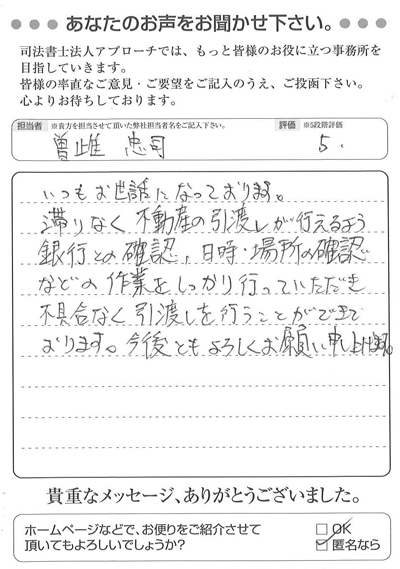 あなたのお声をお聞かせ下さい。
司法書士法人アプローチでは、もっと皆様のお役に立つ事務所を
目指していきます。
皆様の率直なご意見・ご要望をご記入のうえ、ご投函下さい。
心よりお待ちしております。
担当者 ※貴方を担当させて頂いた弊社担当者名をご記入下さい。 評価 ※5段階評価
曽雌 忠司 5.
いつもお世話になっております。
滞りなく不動産の引渡しが行えるよう
銀行との確認、日時・場所の確認
などの作業をしっかり行っていただき
不具合なく引渡しを行うことができて
おります。今後ともよろしくお願い申し上げます。
貴重なメッセージ、ありがとうございました。
ホームページなどで、お便りをご紹介させて □OK
頂いてもよろしいでしょうか? ☑匿名なら